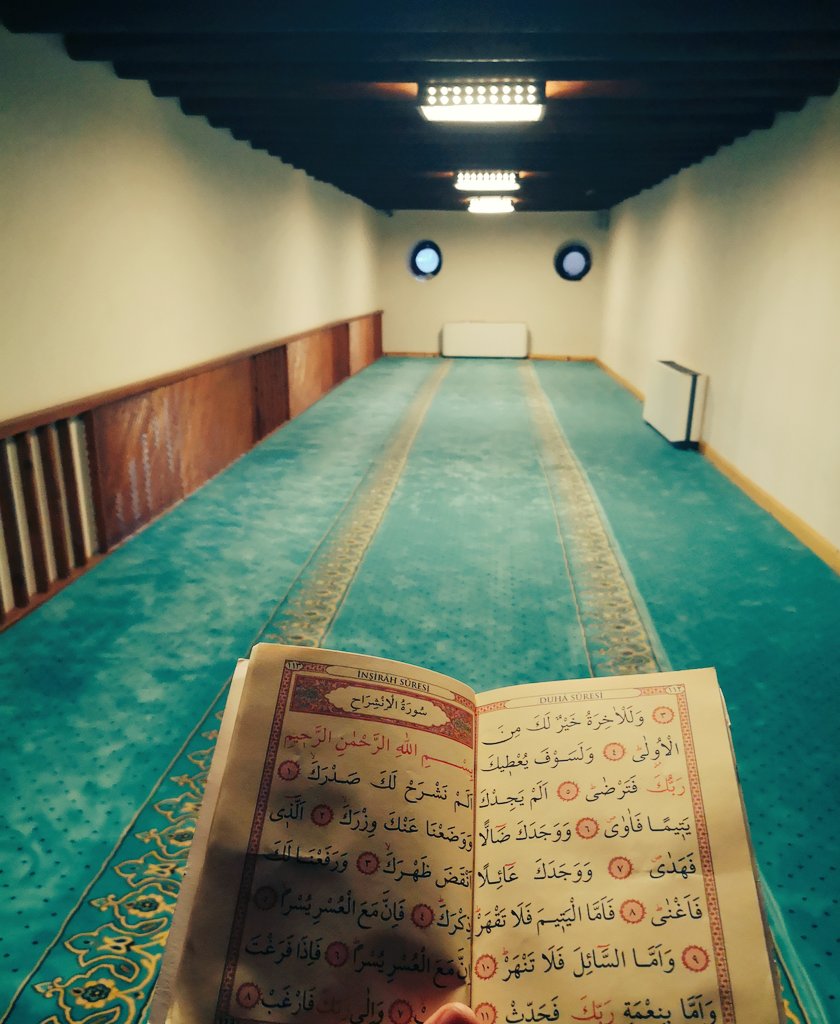 DUHÂ SÛRESİ
٣ وَلَلْاٰخِرَةُ خَيْرٌ لَكَ مِنَ
الْاُولٰىۜ ٤ وَلَسَوْفَ يُعْط۪يكَ
رَبُّكَ فَتَرْضٰىۜ ٥ اَلَمْ يَجِدْكَ
يَت۪يمًا فَاٰوٰىۖ ٦ وَوَجَدَكَ ضَٓالًّا
فَهَدٰىۖ ٧ وَوَجَدَكَ عَٓائِلًا
فَاَغْنٰىۜ ٨ فَاَمَّا الْيَت۪يمَ فَلَا تَقْهَرْۜ
٩ وَاَمَّا السَّٓائِلَ فَلَا تَنْهَرْۜ ١٠
وَاَمَّا بِنِعْمَةِ رَبِّكَ فَحَدِّثْ ١١
١١٣ İNŞİRÂH SÛRESİ
سُورَةُ الْاِنْشِرَاحِ
بِسْمِ اللّٰهِ الرَّحْمٰنِ الرَّح۪يمِ
اَلَمْ نَشْرَحْ لَكَ صَدْرَكَۙ ١
وَوَضَعْنَا عَنْكَ وِزْرَكَۙ ٢ اَلَّذ۪ٓي
اَنْقَضَ ظَهْرَكَۙ ٣ وَرَفَعْنَا لَكَ
ذِكْرَكَۜ ٤ فَاِنَّ مَعَ الْعُسْرِ يُسْرًاۙ ٥
اِنَّ مَعَ الْعُسْرِ يُسْرًاۜ ٦ فَاِذَا فَرَغْتَ
٧ وَاِلٰى رَبِّكَ فَارْغَبْ ٨